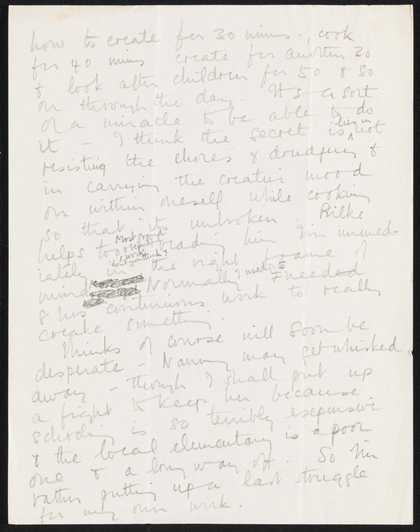 how to create for 30 mins - cook
for 40 mins create for another 30
& look after children for 50 & so
on through the day. It's a sort
of a miracle to be able to do
it - I think the secret lies in not
resisting the chores & drudgery &
in carrying the creative mood
on within oneself while cooking
so that it's unbroken Rilke
helps to
reading him I'm immed-
iately in the right frame of
mind Normally I need
8 hrs continuous work to really
create something.
Thinks of course will soon be
desperate - Nanny may get whisked
away - though I shall put up
a fight to keep her because
schooling is so terribly expensive
& the local elementary is a poor
one & a long way off. So I'm
rather putting up a last struggle
for my own work.